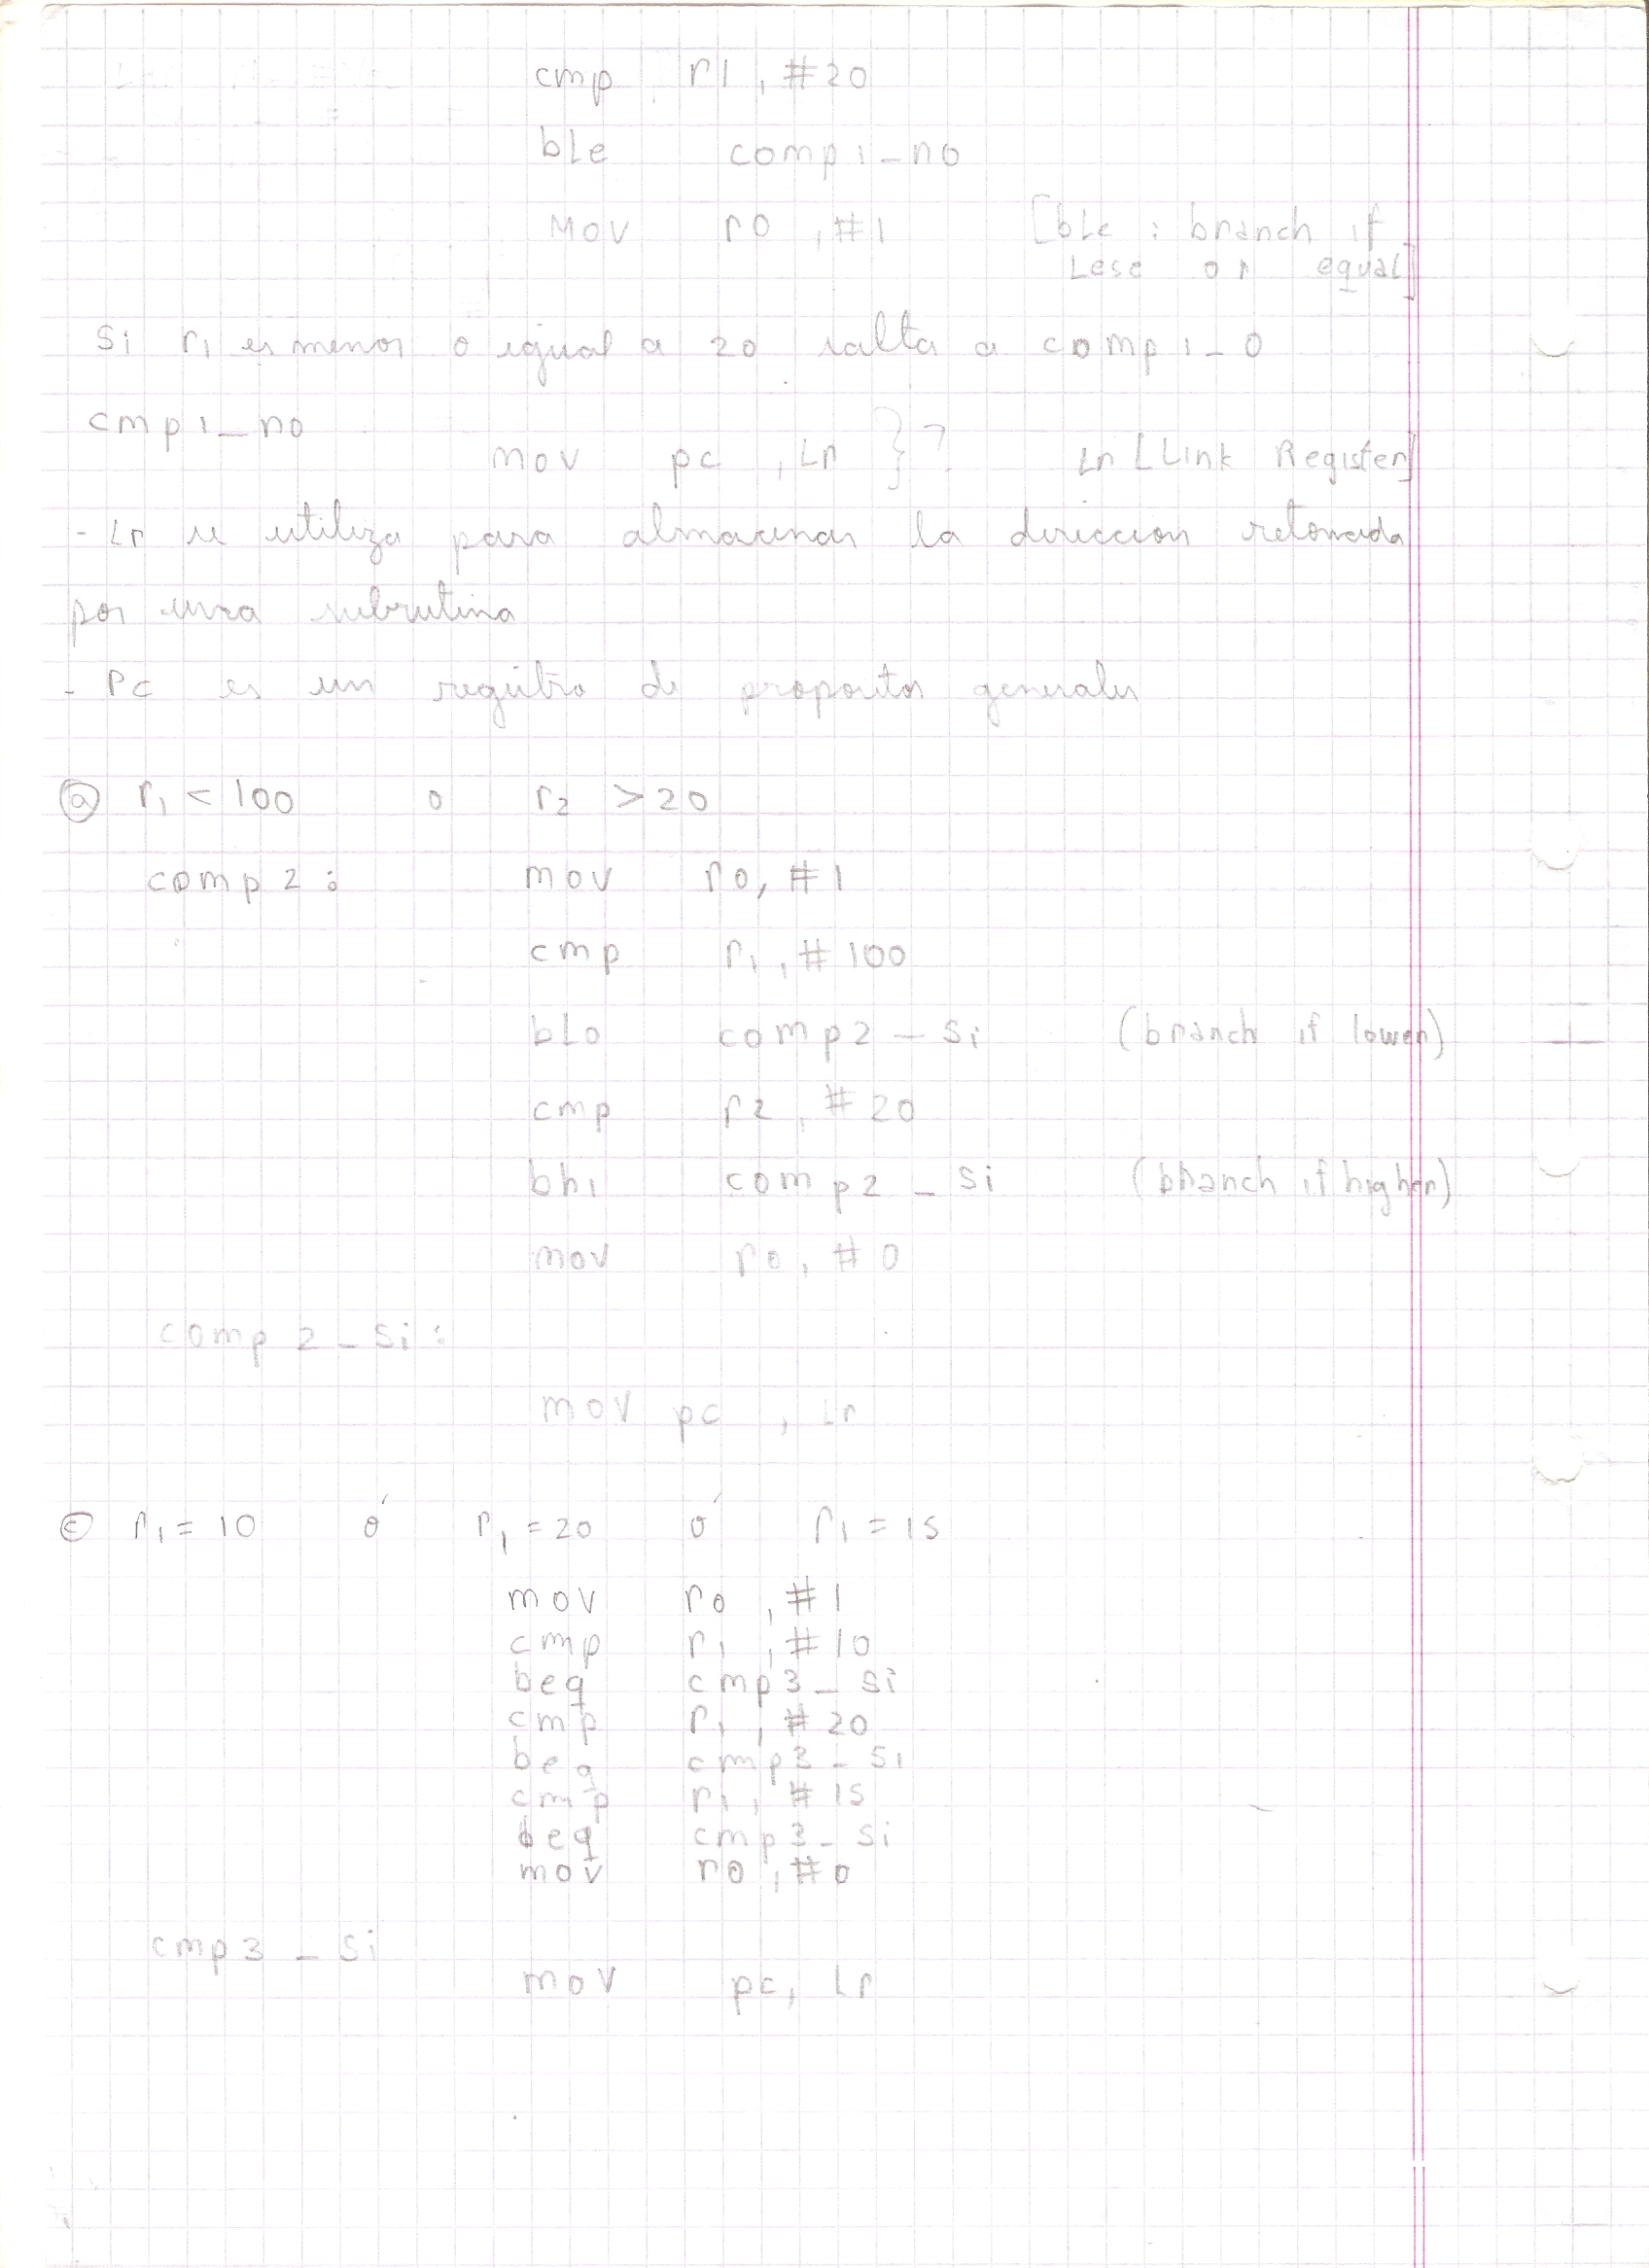 cmp r1, #20
ble comp1_no
mov r0, #1 [ble : branch if
Lese or equal]
Si r1 es menor o igual a 20 salta a comp1_0
cmp1_no
mov pc, Lr }? Lr [Link Register]
- Lr se utiliza para almacenar la direccion retornada
por una subrutina
- Pc es un registro de propositos generales
(a) r1 < 100 o r2 > 20
comp2: mov r0, #1
cmp r1, #100
blo comp2_si (branch if lower)
cmp r2, #20
bhi comp2_si (branch if higher)
mov r0, #0
comp2_si:
mov pc, Lr
(c) r1 = 10 ó r1 = 20 ó r1 = 15
mov r0, #1
cmp r1, #10
beq cmp3_si
cmp r1, #20
beq cmp3_si
cmp r1, #15
beq cmp3_si
mov r0, #0
cmp3_si
mov pc, Lr